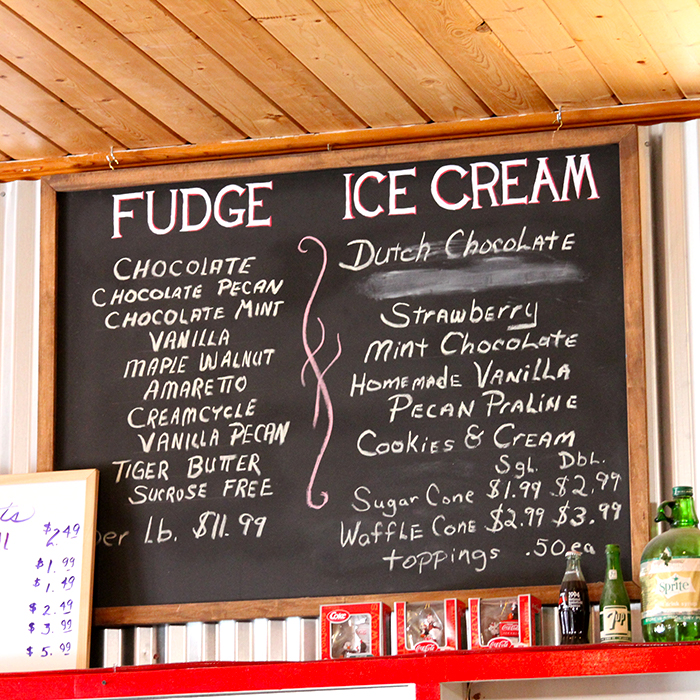 FUDGE
CHOCOLATE
CHOCOLATE PECAN
CHOCOLATE MINT
VANILLA
MAPLE WALNUT
AMARETTO
CREAMCYCLE
VANILLA PECAN
TIGER BUTTER
SUCROSE FREE
per lb. $11.99
ICE CREAM
Dutch Chocolate
Strawberry
Mint Chocolate
Homemade Vanilla
Pecan Praline
Cookies & Cream
Sgl. Dbl.
Sugar Cone $1.99 $2.99
Waffle Cone $2.99 $3.99
toppings .50 ea
$2.49
$1.99
$1.49
$2.49
$3.99
$5.99
Coke
Coca-Cola
Coca-Cola
1994
7up
Sprite